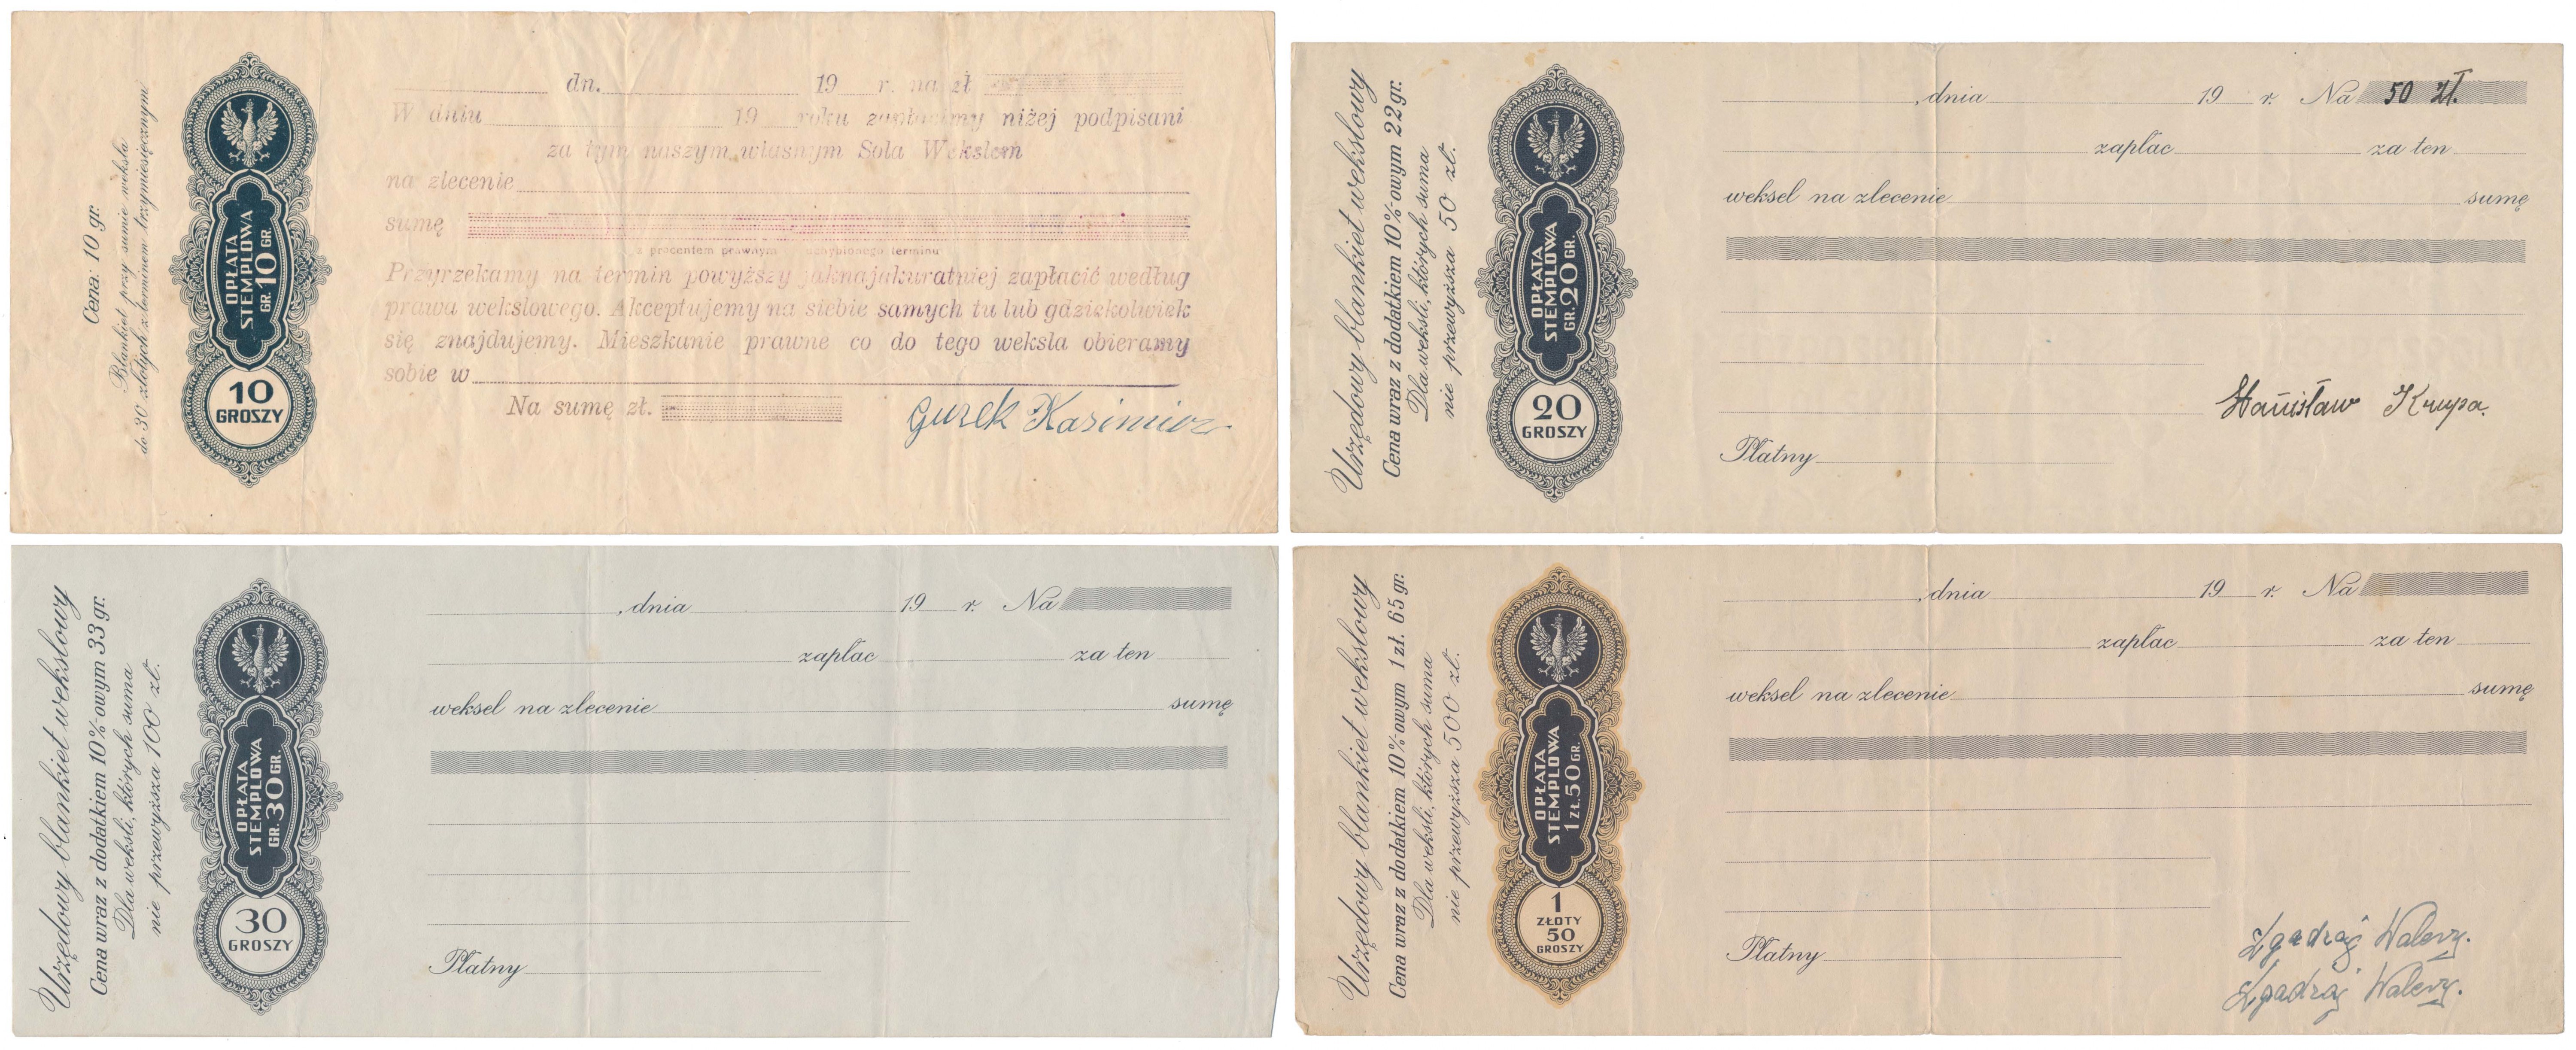 Cena: 10 gr.
Blankiet przy sumie weksla
do 30 złotych z terminem trzymiesięcznym
OPŁATA
STEMPLOWA
GR. 10 GR.
10
GROSZY
dn. 19 r. na zł
W dniu 19 roku zapłacimy niżej podpisani
za tym naszym własnym Sola Wekslem
na zlecenie
sumę
z procentem prawnym uchybionego terminu
Przyrzekamy na termin powyższy jaknajakuratniej zapłacić według
prawa wekslowego. Akceptujemy na siebie samych tu lub gdziekolwiek
się znajdujemy. Mieszkanie prawne co do tego weksla obieramy
sobie w
Na sumę zł.
Gurek Kazimierz
Urzędowy blankiet wekslowy
Cena wraz z dodatkiem 10%-owym 22 gr.
Dla weksli, których suma
nie przewyższa 50 zł.
OPŁATA
STEMPLOWA
GR. 20 GR.
20
GROSZY
, dnia 19 r. Na 50 zł.
zapłac za ten
weksel na zlecenie sumę
Stanisław Krupa.
Płatny
Urzędowy blankiet wekslowy
Cena wraz z dodatkiem 10%-owym 33 gr.
Dla weksli, których suma
nie przewyższa 100 zł.
OPŁATA
STEMPLOWA
GR. 30 GR.
30
GROSZY
, dnia 19 r. Na
zapłac za ten
weksel na zlecenie sumę
Płatny
Urzędowy blankiet wekslowy
Cena wraz z dodatkiem 10%-owym 1 zł. 65 gr.
Dla weksli, których suma
nie przewyższa 500 zł.
OPŁATA
STEMPLOWA
1 ZŁ. 50 GR.
1
ZŁOTY
50
GROSZY
, dnia 19 r. Na
zapłac za ten
weksel na zlecenie sumę
Płatny
Zgadzaj Walery.
Zgadzaj Walery.